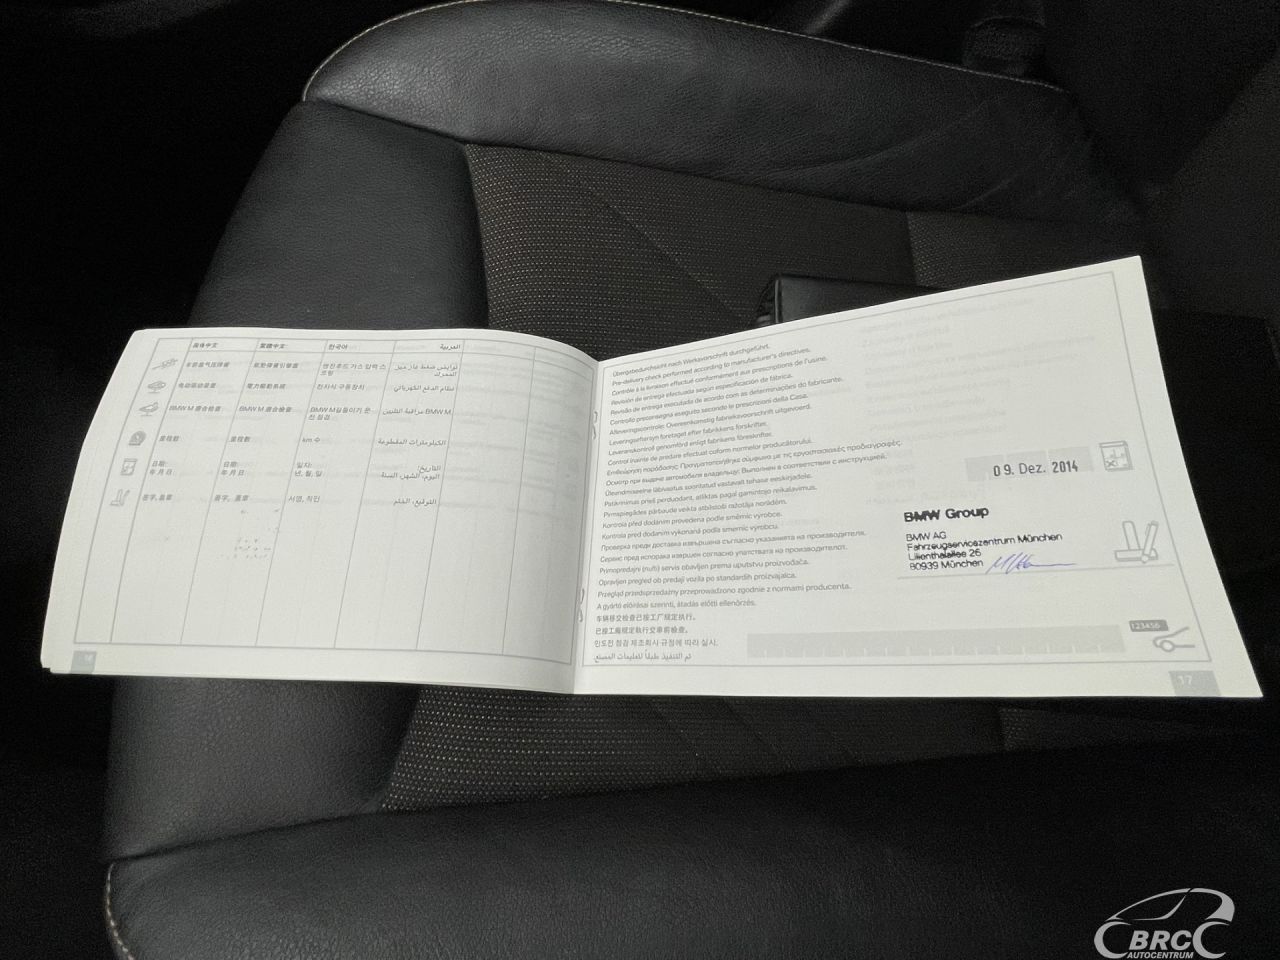 简体中文 繁體中文 한국어 العربية
电动驱动装置 電力驅動系統 전자식 구동장치 نظام الدفع الكهربائي
BMW M 磨合检查 BMW M 磨合檢查 BMW M길들이기 운전 점검 مراقبة التليين BMW M
里程数 里程數 km 수 الكيلومترات المقطوعة
日期: 日期: 일자: التاريخ:
年 月 日 年 月 日 년, 월, 일 اليوم، الشهر، السنة
签字, 盖章 簽字, 蓋章 서명, 직인 التوقيع، الختم
Übergabedurchsicht nach Werksvorschrift durchgeführt.
Pre-delivery check performed according to manufacturer's directives.
Contrôle à la livraison effectué conformément aux prescriptions de l'usine.
Revisión de entrega efectuada según especificación de fábrica.
Revisão de entrega executada de acordo com as determinações do fabricante.
Controllo preconsegna eseguito secondo le prescrizioni della Casa.
Afleveringscontrole: Overeenkomstig fabrieksvoorschrift uitgevoerd.
Leveringseftersyn foretaget efter fabrikkens forskrifter.
Leveranskontroll genomförd enligt fabrikens föreskrifter.
Control înainte de predare efectuat coform normelor producătorului.
Επιθεώρηση παράδοσης: Πραγματοποιήθηκε σύμφωνα με τις εργοστασιακές προδιαγραφές.
Осмотр при выдаче автомобиля владельцу: Выполнен в соответствии с инструкцией.
Üleandmiseelne läbivaatus sooritatud vastavalt tehase eeskirjadele.
Patikrinimas prieš perduodant, atliktas pagal gamintojo reikalavimus.
Pirmspiegādes pārbaude veikta atbilstoši ražotāja norādēm.
Kontrola před dodáním provedena podle směrnic výrobce.
Kontrola pred dodaním vykonaná podľa smerníc výrobcu.
Проверка преди доставка извършена съгласно указанията на производителя.
Сервис пред испорака извршен согласно упатствата на производителот.
Primopredajni (nulti) servis obavljen prema uputstvu proizvođača.
Opravljen pregled ob predaji vozila po standardih proizvajalca.
Przegląd przedsprzedażny przeprowadzono zgodnie z normami producenta.
A gyártó előírásai szerinti, átadás előtti ellenőrzés.
车辆移交检查已按工厂规定执行。
已按工廠規定執行交車前檢查。
인도전 점검 제조회사 규정에 따라 실시.
تم التنفيذ طبقاً لتعليمات المصنع.
09. Dez. 2014
BMW Group
BMW AG
Fahrzeugservicezentrum München
Lilienthalallee 26
80939 München
123456
16
17
BRC
AUTOCENTRUM